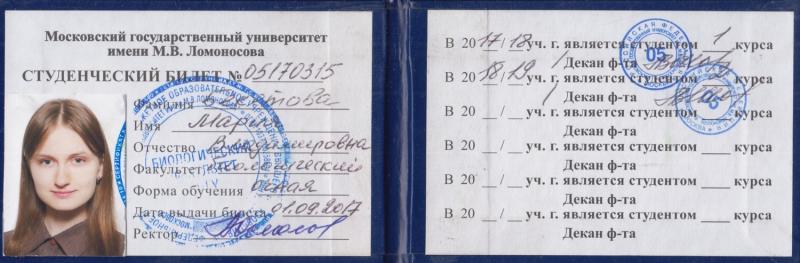 Московский государственный университет
имени М.В. Ломоносова
СТУДЕНЧЕСКИЙ БИЛЕТ № 05170315
Фамилия
Имя Мария
Отчество Владимировна
Факультет биологический
Форма обучения очная
Дата выдачи билета 01.09.2017
Ректор
БИОЛОГИЧЕСКИЙ
В 2017/18 уч. г. является студентом 1 курса
Декан ф-та
05
В 2018/19 уч. г. является студентом курса
Декан ф-та
В 20 __/__ уч. г. является студентом ___ курса
Декан ф-та
В 20 __/__ уч. г. является студентом ___ курса
Декан ф-та
В 20 __/__ уч. г. является студентом ___ курса
Декан ф-та
В 20 __/__ уч. г. является студентом ___ курса
Декан ф-та